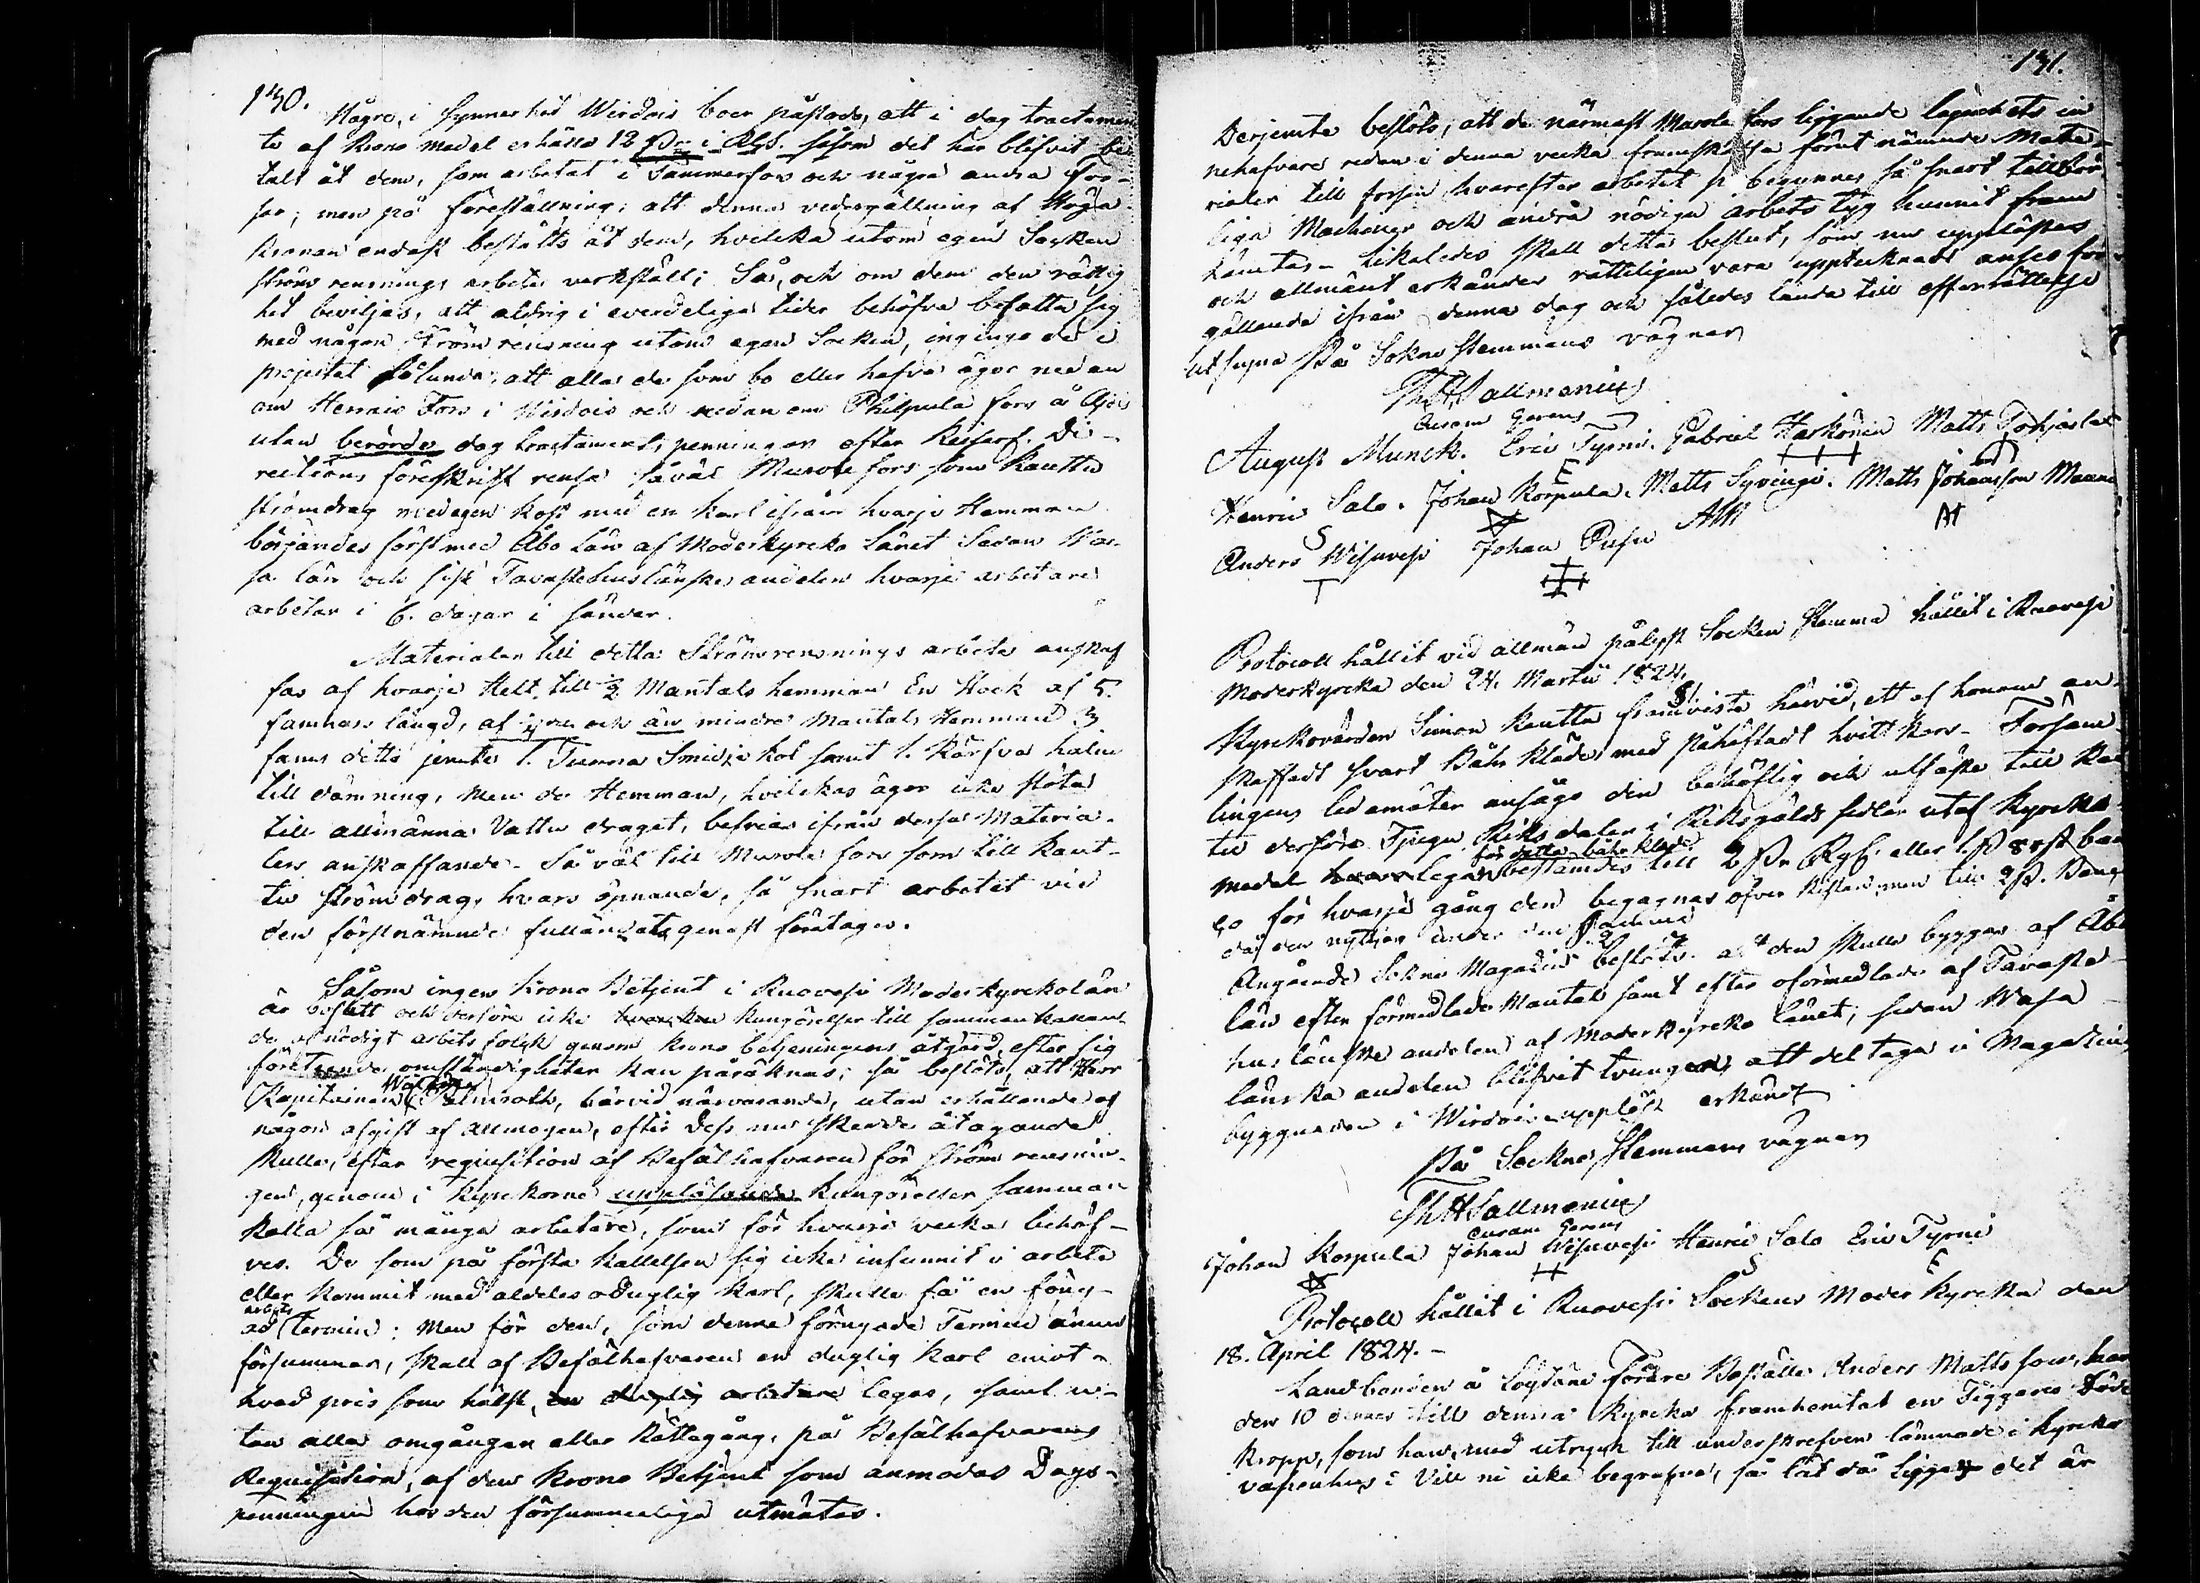 130.
Några, i synnerhet Wirdois boer påstodo, att i dag tractamen
te af Krono medel erhålla 12 ßr i RGS. såsom det har blifvit be
talt åt dem, som arbetat i Tammerfors och några andra For-
sar; men på föreställning; att denna vedergällning af Höga
Kronan endast bestätts åt dem, hvilcka utom egen Socken
ströms rensnings arbete verkställt; Så, och om dem den rättig
het beviljas, att aldrig i everdeliga tider behöfva befatta sig
med någon Strömrensning utom egen Socken, ingingo de i
projectet sålunda, att alla de som bo eller hafva ägor nedan
om Herrais Fors i Wirdois och nedan om Philpula fors å
utan berörde dag tractaments penningar efter Keiserl. Di-
rections föreskrift rensa såväl Murole fors som Kautto
strömdrag med egen kost med en karl ifrån hvarje Hemman
börjandes först med Åbo Län af Moderkyrko länet Sedan Wa-
sa län och sist Tavastehus länske andelen hvarje arbetare
arbetar i 6. dagar i sänder.
Materialen till detta Strömrensnings arbete anskaf
fas af hvarje Helt till ½ Mantals hemman En Stock af 5.
famnars längd, af ¼ och än mindre Mantals Hemman 3
famns detto jemte 1. Tunna Smidje kol samt 1. Kärfva halm
till dämning, men de Hemman, hvilckas ägor icke stöta
till allmänna Vattu draget, befrias ifrån dessa Materia-
liers anskaffande. Så väl till Murole fors som till Kaut-
tu strömdrag, hvars öpnande, så snart arbetet vid
den förstnämnde fulländats genast företages.
Såsom ingen Krono Betjent i Ruovesi Moderkyrkolän
är bosatt och derföre icke kungörelser till sammankallan-
de af nödigt arbets folck genom krono betjeningens åtgärd, efter sig
företeende omständigheter kan påräknas; så beslöts, att Herr
Kapitainen Palmroth, härvid närvarande, utan erhållande af
någon afgift af allmogen, efter dess nu skedde åtagande
skulle, efter requisition af Befälhafvaren för ström rensnin-
gen, genom i Kyrckorne uppläsande kungörelser samman
kalla så många arbetare, som för hvarje vecka behöf-
ves. De som på första kallelsen sig icke infunnit i arbete
eller kommit med aldeles oduglig karl, skulle få en föng-
arbets
ad termin; Men för den, som denna förnyade Termin ännu
försummar, skall af Befälhafvaren en duglig karl emot
hvad pris som hälst, en duglig arbetare legas, samt u-
tan alla omgångar eller Rättegång, på Befälhafvarens
Requisition, af den Krono Betjent som anmodas Dags-
penningen hos den försummeliga utmätas.
131.
Derjemte beslöts, att de närmast Murole fors liggande lägenhets in
nehafvare redan i denna vecka framskaffa förut nämnde Mate-
rialer till forsen hvarefter arbetet begynnes så snart tillbör
liga Machiner och andra nödiga arbets tyg hunnit fram
hämtas. Likaledes skall detta beslut, som nu uppläses
och allmänt erkändes rätteligen vara upptecknadt anses för
gällande ifrån denna dag och således lända till efterrättelse
Ut supra På Sokne Stemmans vägnar
Th H Sallmenius
Curam Gerens
August Munck. Eric Tyrni. Gabriel Harkönen Matts Pohjaslat
Henric Salo. Johan Korpula. Matts Syvingi. Matts Johansson
Anders Wisuvesi Johan
Protocoll hållit vid allmän pålyst Socken Stemma hållit i Ruovesi
Moderkyrcka den 24. Martii 1824.
Kyrkovärden Simon Kautta framviste härvid, ett af honom an-
skaffadt svart Bahr kläde, med påhäftadt hvitt kors. Försam-
lingens ledamöter ansågo den behöflig och utfäste till Kau
tu derföre Tjugu Riksdaler i Riksgälds sedlar utaf Kyrcko
för detta bahr kläde
medel Legan bestämdes till 2 ßr RgS. eller
co för hvarje gång den begagnas öfver kistan, men till 2ß. Banco
då den nyttjas under den samma
Angående Sokne Magazin beslöts. att den skulle byggas af Åbo
län efter förmedlade Mantal samt efter oförmedlade af Tavaste-
hus länske andelen af Moderkyrko länet, sedan Wasa
länska andelen blifvit tvungen att deltaga i Magazins
byggnaden i Wirdois. uppläst erkändt
På Sockne Stemmans vägnar
Th H Sallmenius
Curam Gerens
Johan Korpula Johan Wisuvesi Henric Salo Eric Tyrni
Protocoll hållit i Ruovesi Sockens Moder Kyrcka den
18. April 1824. -
Landbonden å Löydäne Förare Boställe Anders Matts son, har
den 10 dennes till denna kyrcka framhemtat en Tiggares Döde
kropp, som han, med utryck till underskrefven lämnade i kyrcko
vapenhus: Vill ni icke begrafva, så låt då ligga det är